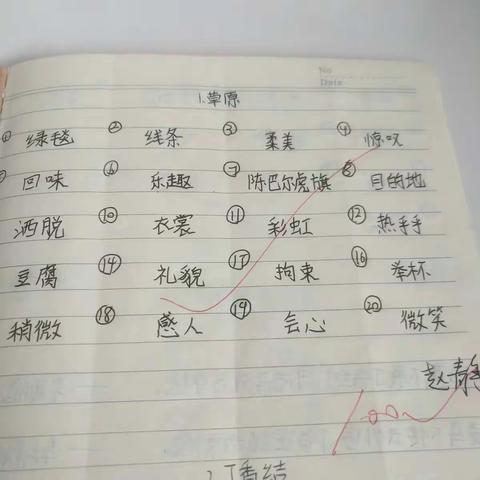 No
Date
1.草原
① 绿毯 ② 线条 ③ 柔美 ④ 惊叹
回味 ⑥ 乐趣 ⑦ 陈巴尔虎旗 ⑧ 目的地
洒脱 ⑩ 衣裳 ⑪ 彩虹 ⑫ 热乎乎
豆腐 ⑭ 礼貌 ⑰ 拘束 ⑯ 举杯
稍微 ⑱ 感人 ⑲ 会心 ⑳ 微笑
赵静
100
2.丁香结